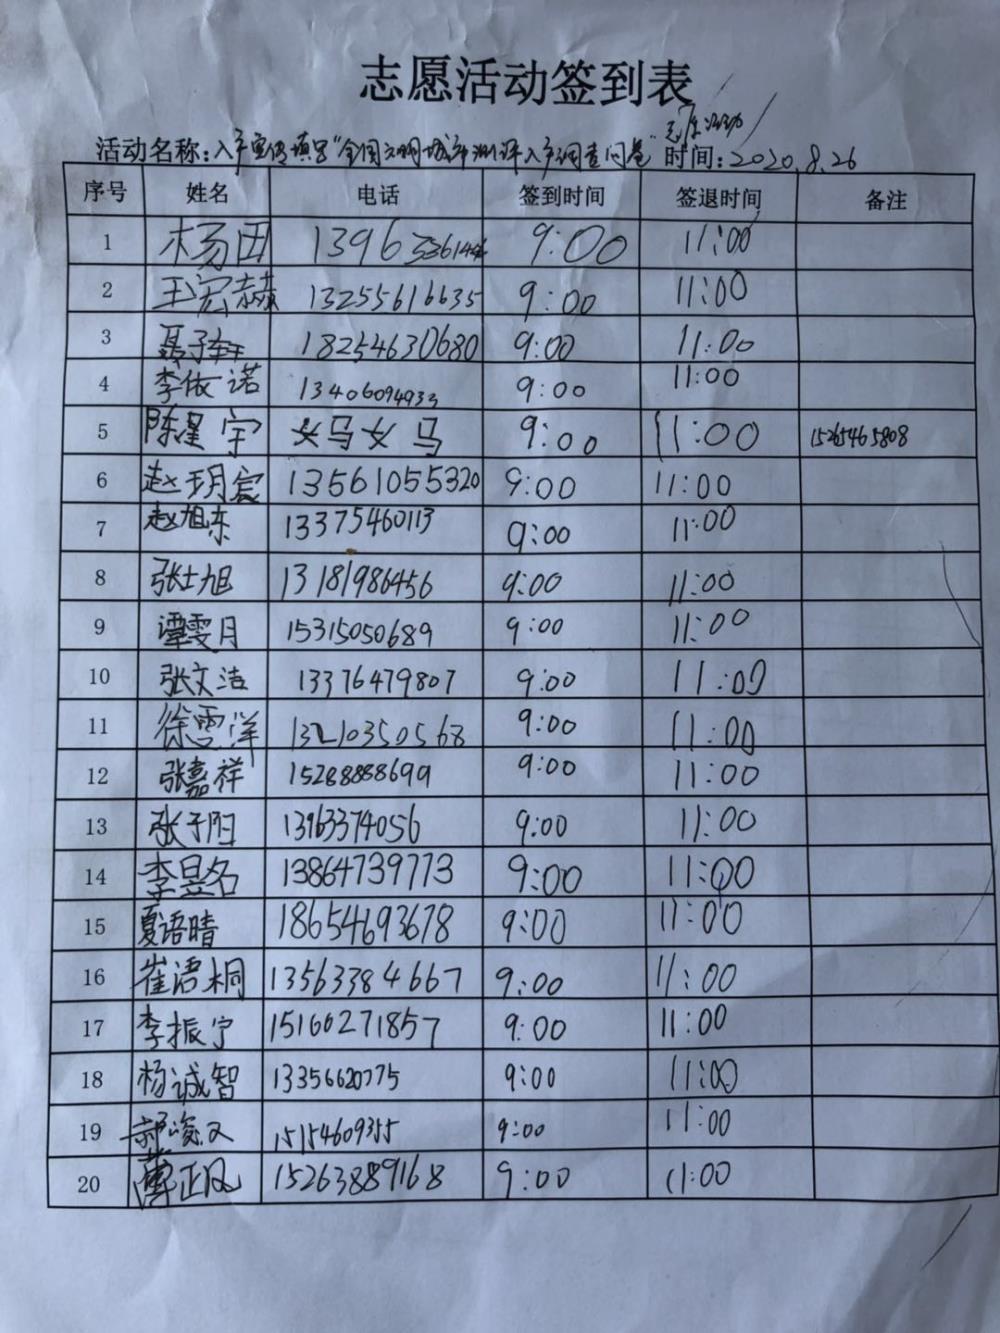 志愿活动签到表
志愿活动
活动名称：入户宣传填写“全国文明城市测评入户调查问卷” 时间：2020.8.26
序号 姓名 电话 签到时间 签退时间 备注
1 杨田 1396 9:00 11:00
2 王宏赫 13255616635 9:00 11:00
3 聂子轩 18254630680 9:00 11:00
4 李依诺 13406094933 9:00 11:00
5 陈星宇 女马女马 9:00 11:00 15265465808
6 赵玥宸 13561055320 9:00 11:00
7 赵旭东 13375460113 9:00 11:00
8 张士旭 13181986456 9:00 11:00
9 谭雯月 15315050689 9:00 11:00
10 张文洁 13376479807 9:00 11:00
11 徐雪洋 13210350568 9:00 11:00
12 张嘉祥 15288888699 9:00 11:00
13 张子阳 13963374056 9:00 11:00
14 李昱名 13864739773 9:00 11:00
15 夏语晴 18654693678 9:00 11:00
16 崔浯桐 13563384667 9:00 11:00
17 李振宁 15166271857 9:00 11:00
18 杨诚智 13356620775 9:00 11:00
19 郝竣又 15154609355 9:00 11:00
20 正风 15263889168 9:00 11:00